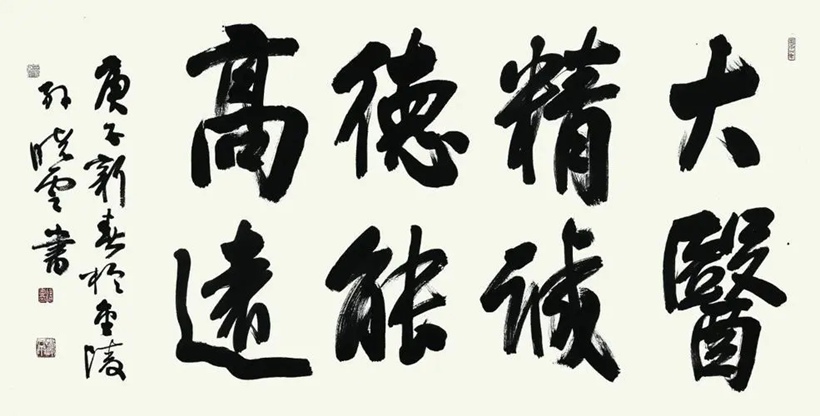 大醫
精誠
德能
高遠
庚子新春於金陵
孫曉雲書